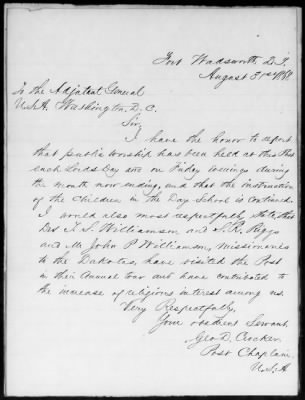 Fort Wadsworth, D.T.
August 31st
To the Adjutant General
U.S.A. Washington, D.C.
Sir,
I have the honor to report
that public worship has been held at this Post
each Lord's Day and on Friday evenings during
the month now ending, and that the instruction
of the Children in the Day School is continued.
I would also most respectfully state, that
Drs T. S. Williamson and S. R. Riggs
and Mr John P Williamson, Missionaries
to the Dakotas, have visited the Post
in their Annual tour and have contributed to
the increase of religious interest among us.
Very Respectfully,
Your obedient Servant.
Geo D. Crocker
Post Chaplain
U.S.A.